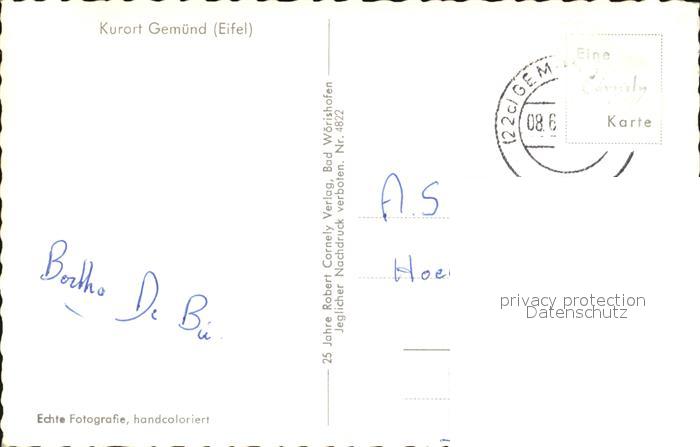 Kurort Gemünd (Eifel)
Eine
Cornely
Karte
(22c) GEM
08.6
25 Jahre Robert Cornely Verlag, Bad Wörishofen
Jeglicher Nachdruck verboten. Nr. 4822
A. S
Hoe
Bertha De Bü
privacy protection
Datenschutz
Echte Fotografie, handcoloriert